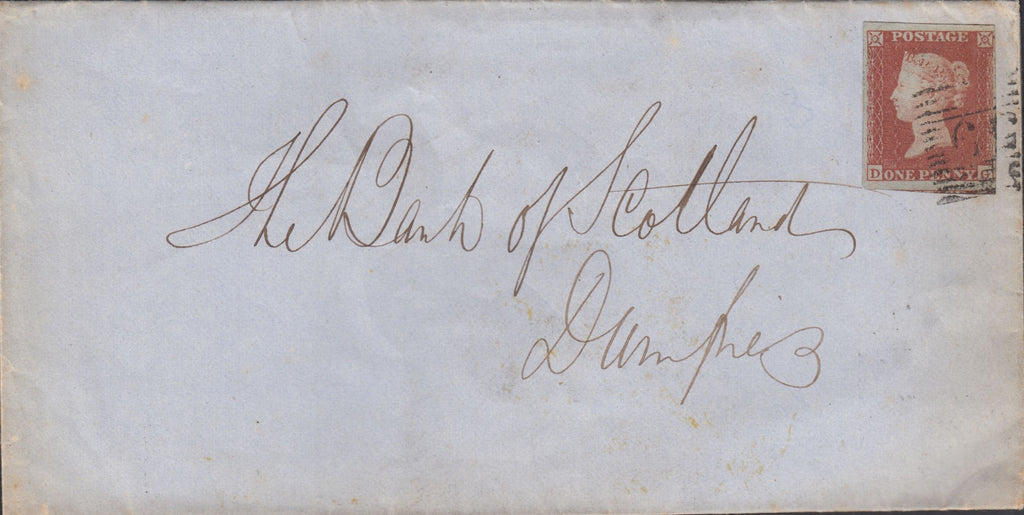 POSTAGE
D ONE PENNY
The Bank of Scotland
Dumfries